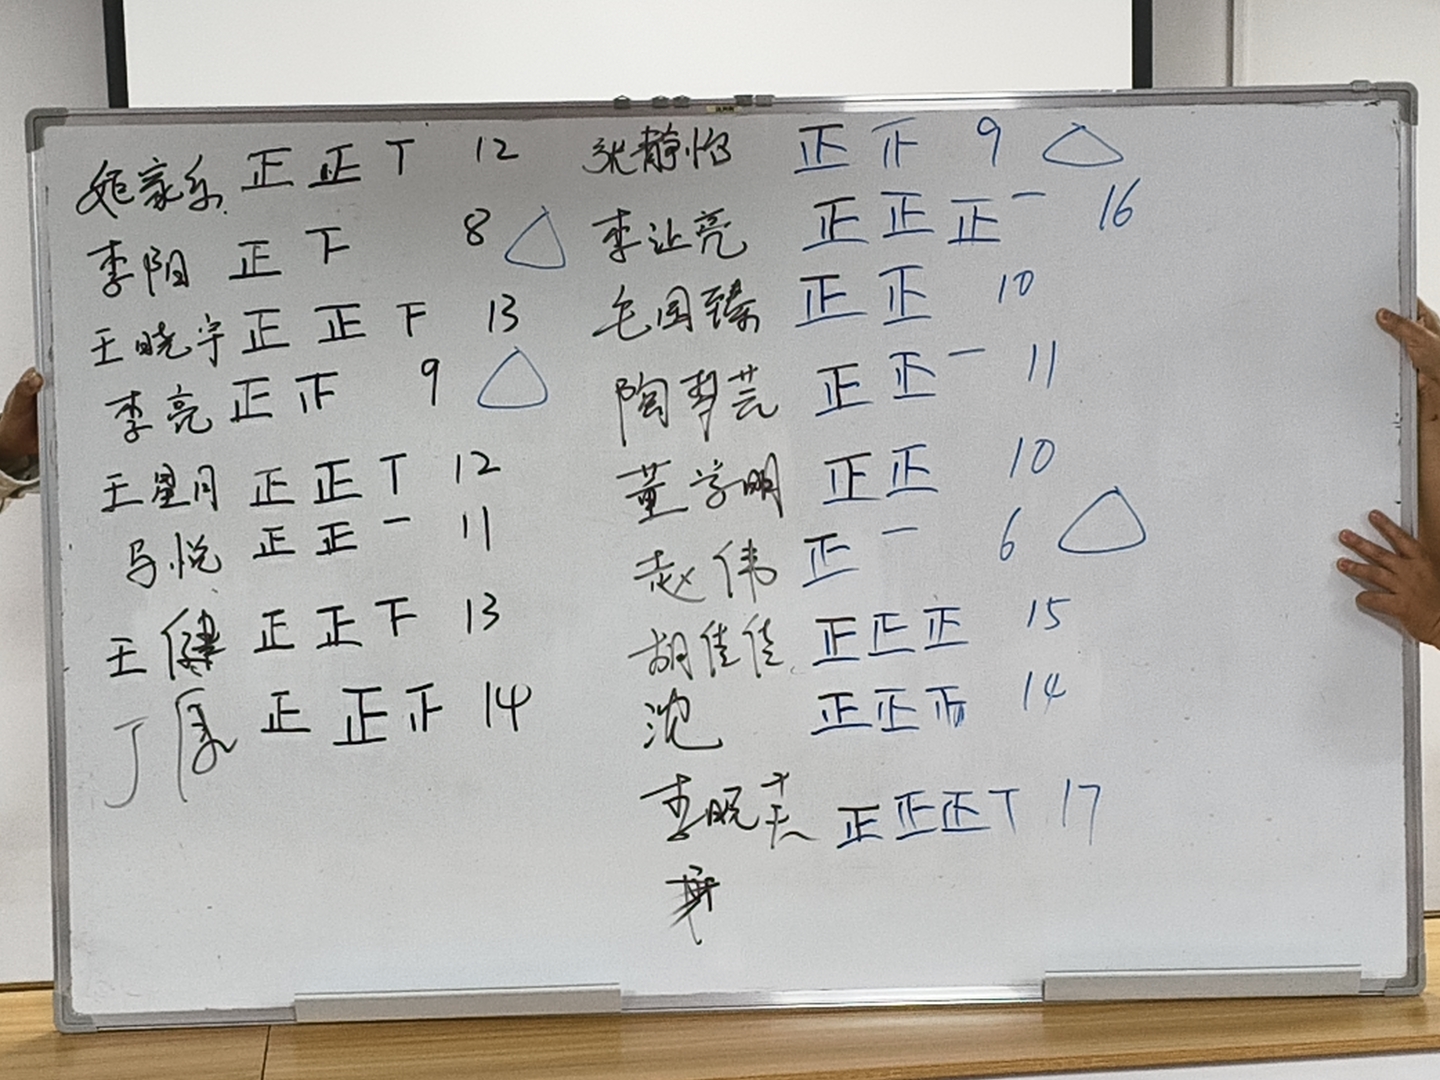 姬家乐 正 正 丅 12
李阳 正 下 8
王晓宇 正 正 下 13
李亮 正 正 9
王星月 正 正 丅 12
马悦 正 正 一 11
王健 正 正 下 13
丁 正 正 正 14
张静怡 正 正 9
李让亮 正 正 正 一 16
毛国臻 正 正 10
陶梦芸 正 正 一 11
董学明 正 正 10
赵伟 正 一 6
胡佳佳 正 正 正 15
沈 正 正 正 14
李晛 正 正 正 丅 17